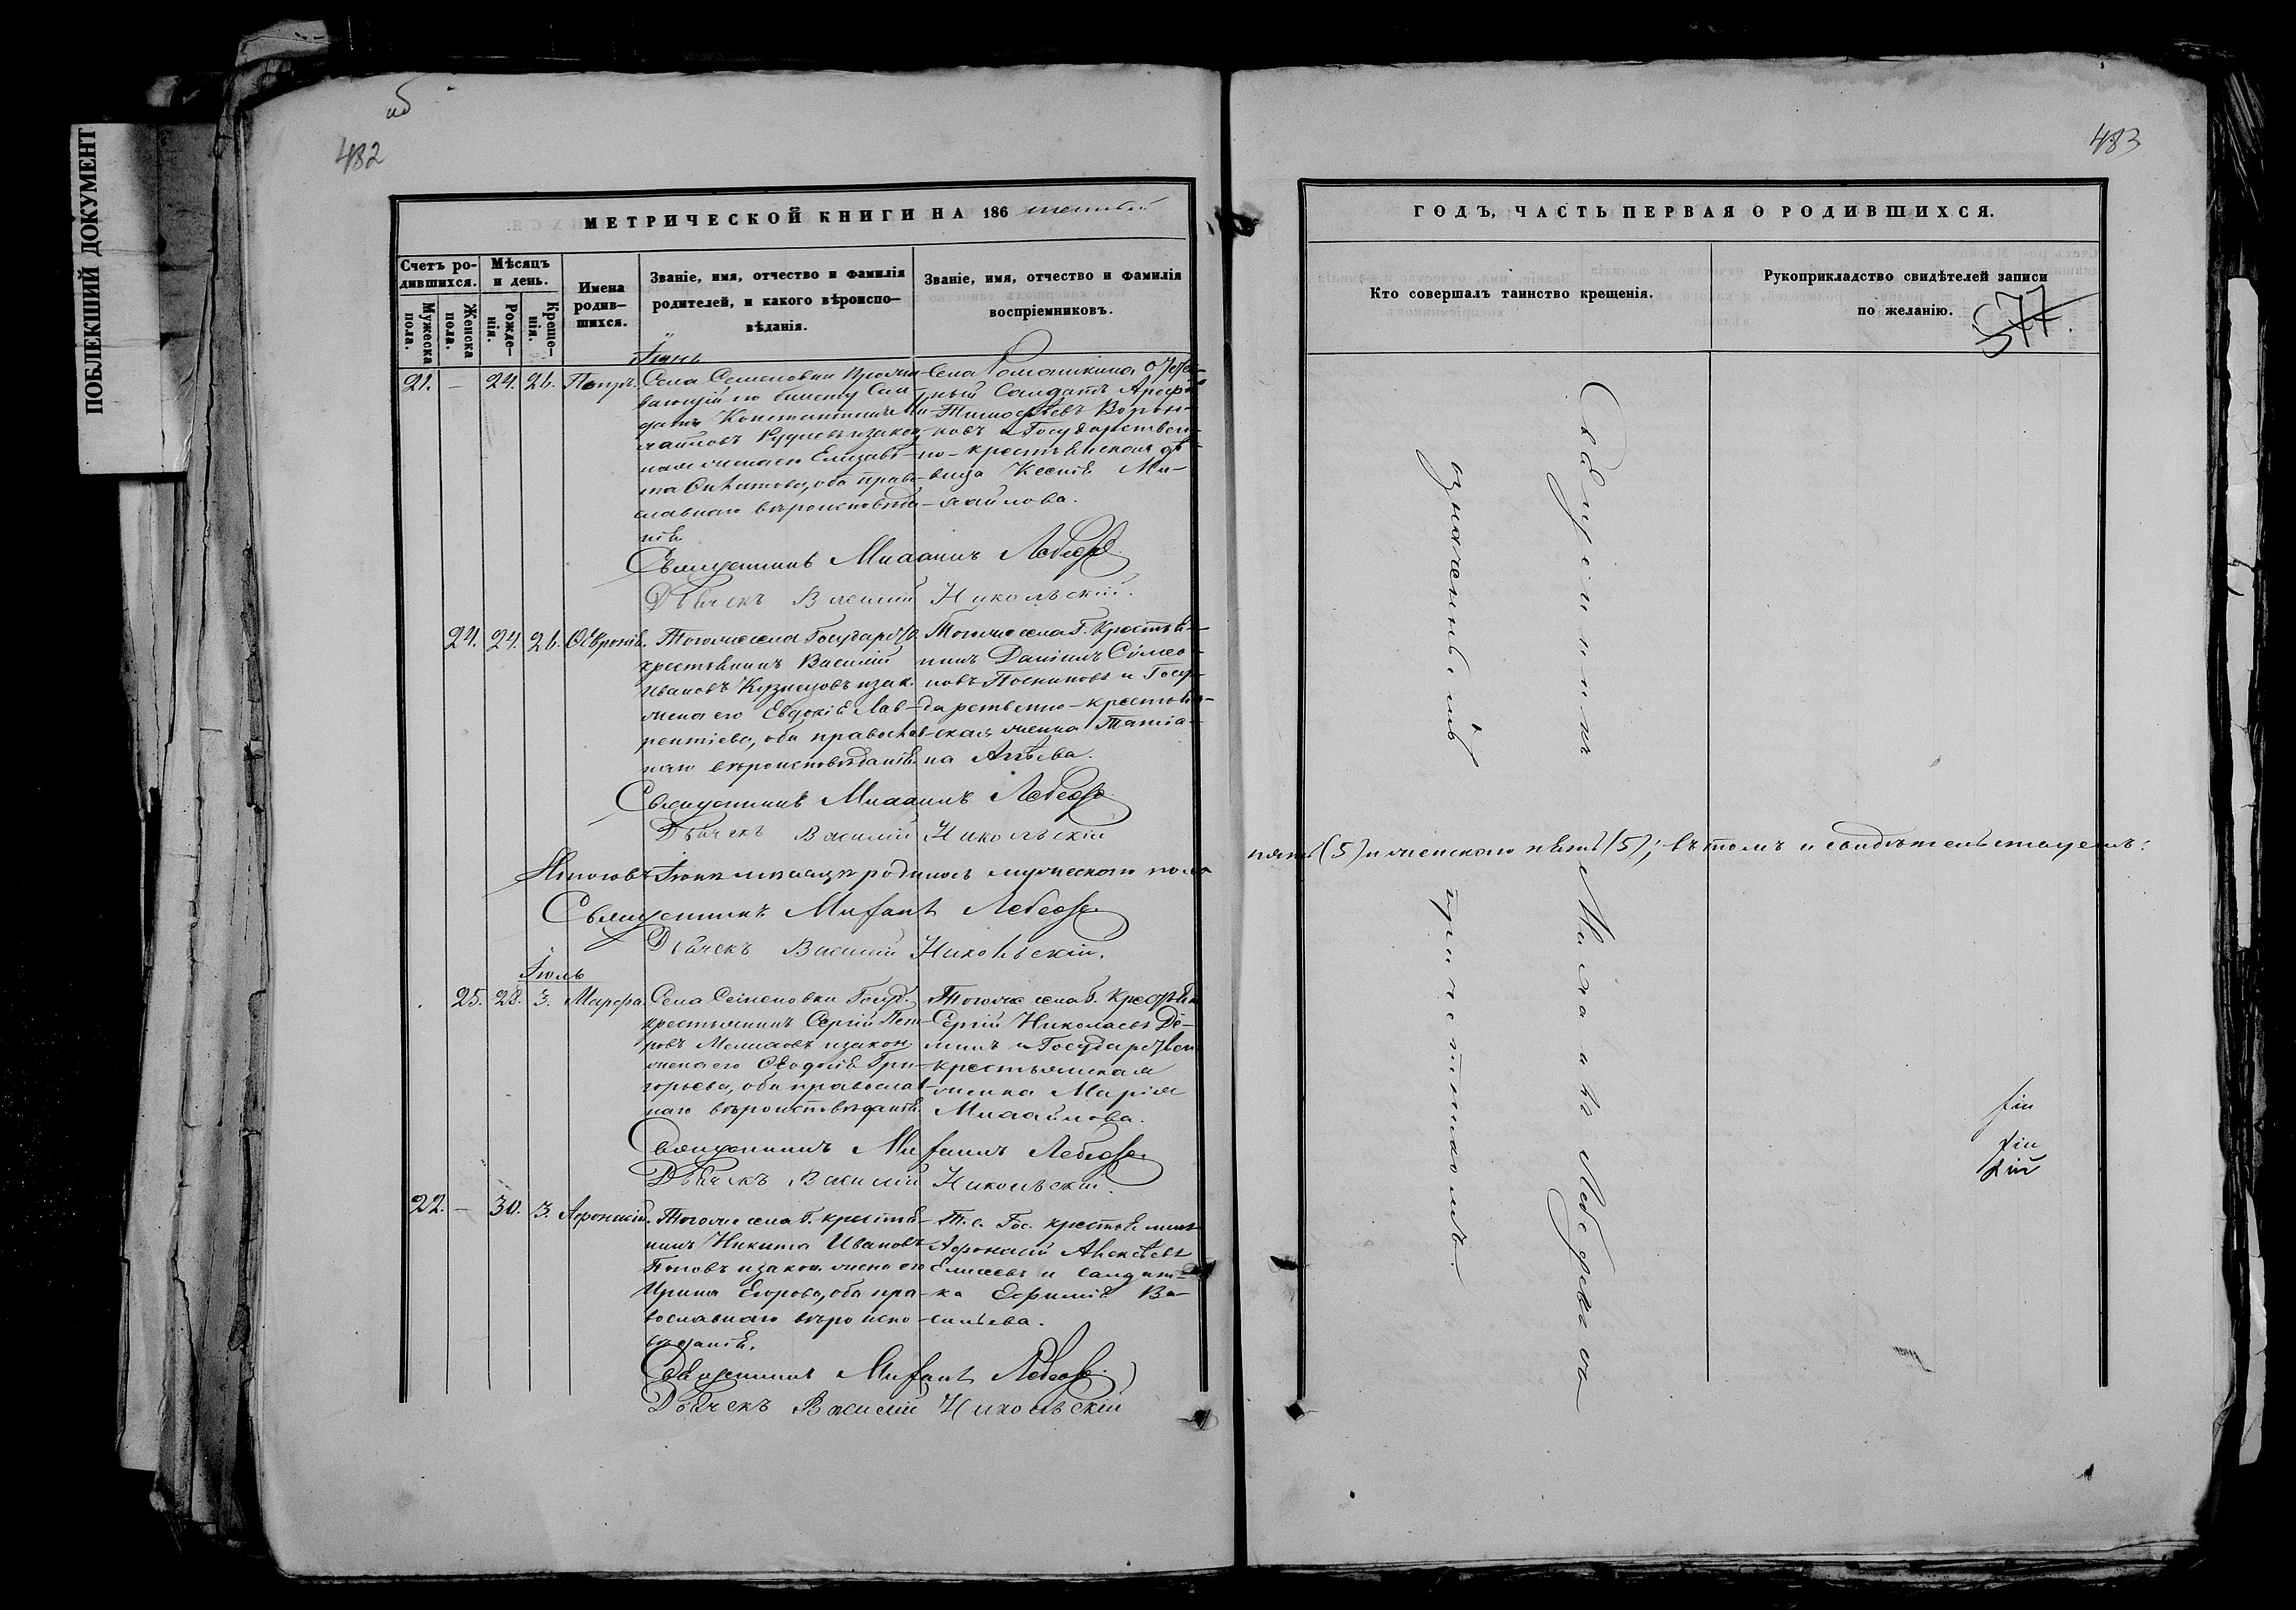 ПОБЛЕКШИЙ ДОКУМЕНТ
об
482
МЕТРИЧЕСКОЙ КНИГИ НА 186
Счетъ ро-
дившихся.
Мужеска
пола.
Женска
пола.
Мѣсяцъ
и день.
Рожде-
нія.
Креще-
нія.
Имена
родив-
шихся.
Званіе, имя, отчество и фамилія
родителей, и какого вѣроиспо-
вѣданія.
Званіе, имя, отчество и фамилія
воспріемниковъ.
Іюнь
21. — 24. 26. Петръ.
Села Семеновки Прожи-
вающій по билету Сол-
датъ Константинъ Ми-
хайловъ и закон
ная жена его Елизаве-
та оба право-
славнаго вѣроисповѣда-
нія
Села Ромашкина
ный Солдатъ Арефій
Тимофѣевъ Ворон-
ковъ и Государствен-
но-крестьянская дѣ-
вица Ксенія Ми-
хайлова.
Священникъ Михаилъ Лебедевъ
Дьячекъ Василій Никольскій.
24. 24. 26. Февронія.
Тогоже села Государст.
крестьянинъ Василій
Ивановъ Кузнецовъ и зак.
жена его Евдокія Лав-
рентіева, оба православ-
наго вѣроисповѣданія.
Тогоже села Г. Крестья-
нинъ Даніилъ Симео-
новъ и Госу-
дарственно-крестьян-
ская женка Татіа-
на
Священникъ Михаилъ Лебедевъ
Дьячекъ Василій Никольскій
Итого въ Іюнѣ мѣсяцѣ родилось мужескаго пола
пять (5) и женскаго пять (5); въ томъ и свидѣтельствуемъ:
Священникъ Михаилъ Лебедевъ
Дьячекъ Василій Никольскій.
Іюль
25. 28. 3. Марфа.
Села Семеновки Госуд.
крестьянинъ Сергій Пет-
ровъ и закон.
жена его Феодосія Гри-
горьева, оба православ-
наго вѣроисповѣданія.
Тогоже села Г. Крестьян.
Сергій Николаевъ Де-
минъ и Государствен
крестьянская
женка Марія
Михайлова.
Священникъ Михаилъ Лебедевъ
Дьячекъ Василій Никольскій.
22. — 30. 3. Афонасій.
Тогоже села Г. крестья-
нинъ Никита Ивановъ
Поповъ и закон. жена его
Ирина Егорова, оба пра-
вославнаго вѣроиспо-
вѣданія.
Т. с. Гос. крестьянинъ
Афонасій Алексѣевъ
Елисеевъ и солдат-
ка Евфимія Ва-
сильева.
Священникъ Михаилъ Лебедевъ
Дьячекъ Василій Никольскій
483
ГОДЪ, ЧАСТЬ ПЕРВАЯ О РОДИВШИХСЯ.
Кто совершалъ таинство крещенія.
Рукоприкладство свидѣтелей записи
по желанію.
577
Священникъ Михаилъ Лебедевъ съ
означеннымъ причетникомъ.